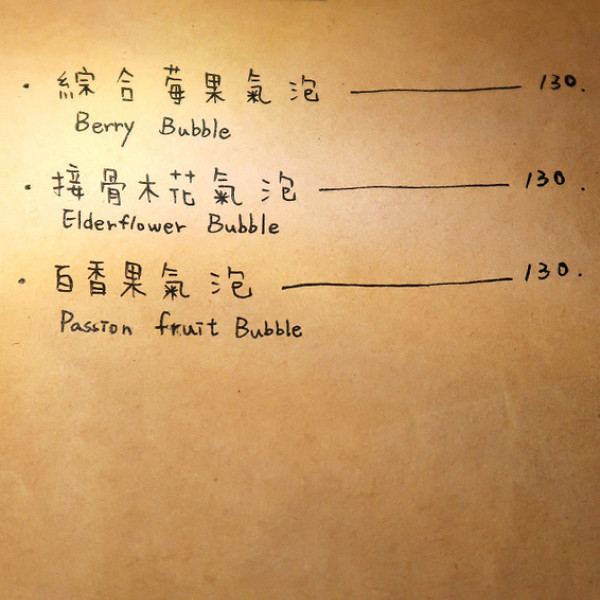 · 綜合莓果氣泡 —— 130.
Berry Bubble
· 接骨木花氣泡 —— 130.
Elderflower Bubble
· 百香果氣泡 —— 130.
Passion fruit Bubble